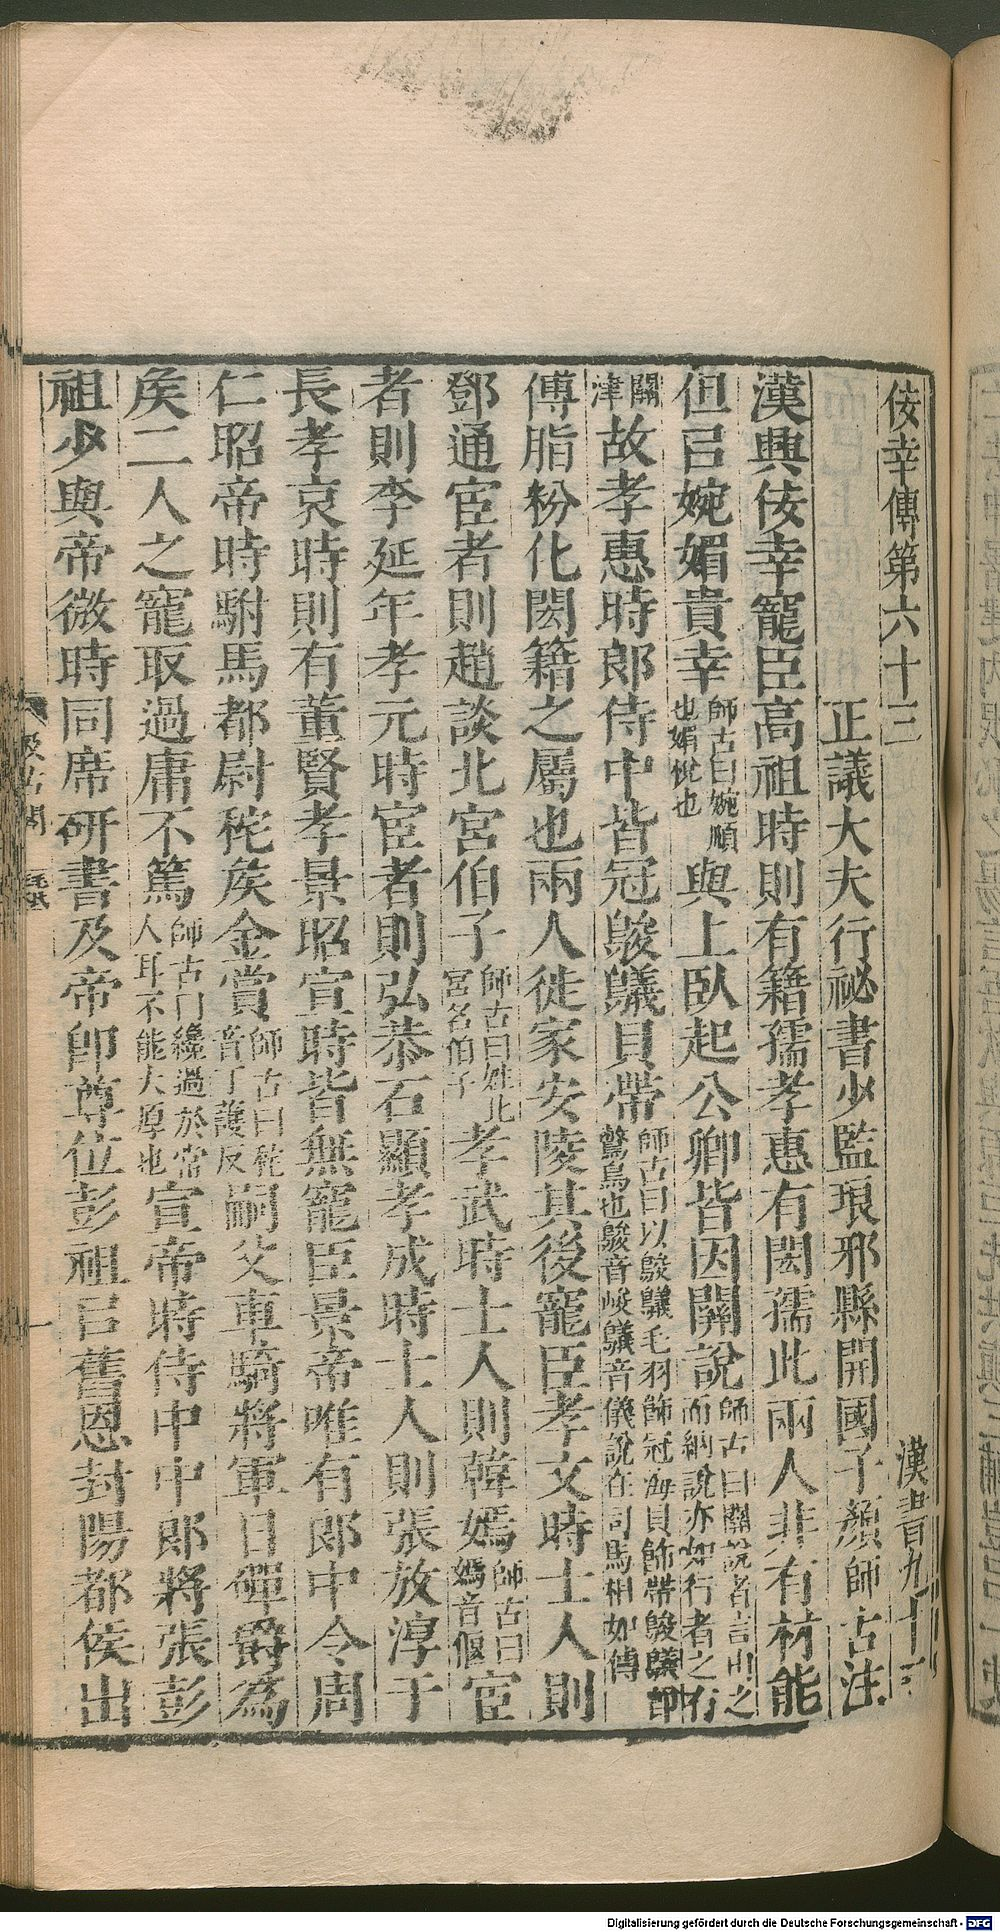 佞幸傳第六十三　漢書九十三
正議大夫行祕書少監琅邪縣開國子顏師古注
漢興佞幸寵臣高祖時則有籍孺孝惠有閎孺此兩人非有材能
但㠯婉媚貴幸師古曰婉順也媚悅也與上臥起公卿皆因關說師古曰關說者言由之而納說亦如行者之有
關津故孝惠時郎侍中皆冠鵔鸃貝帶師古曰以鵔鸃毛羽飾冠海貝飾帶鵔鸃即鷩鳥也鵔音峻鸃音儀說在司馬相如傳
傅脂粉化閎籍之屬也兩人徙家安陵其後寵臣孝文時士人則
鄧通宦者則趙談北宮伯子師古曰姓北宮名伯子孝武時士人則韓嫣師古曰嫣音偃宦
者則李延年孝元時宦者則弘恭石顯孝成時士人則張放淳于
長孝哀時則有董賢孝景昭宣時皆無寵臣景帝唯有郎中令周
仁昭帝時駙馬都尉秺矦金賞師古曰秺音丁護反嗣父車騎將軍日磾爵為
矦二人之寵取過庸不篤師古曰纔過於常人耳不能大厚也宣帝時侍中中郎將張彭
祖少與帝微時同席研書及帝即尊位彭祖㠯舊恩封陽都侯出
汲古閣
毛氏
一
Digitalisierung gefördert durch die Deutsche Forschungsgemeinschaft - DFG